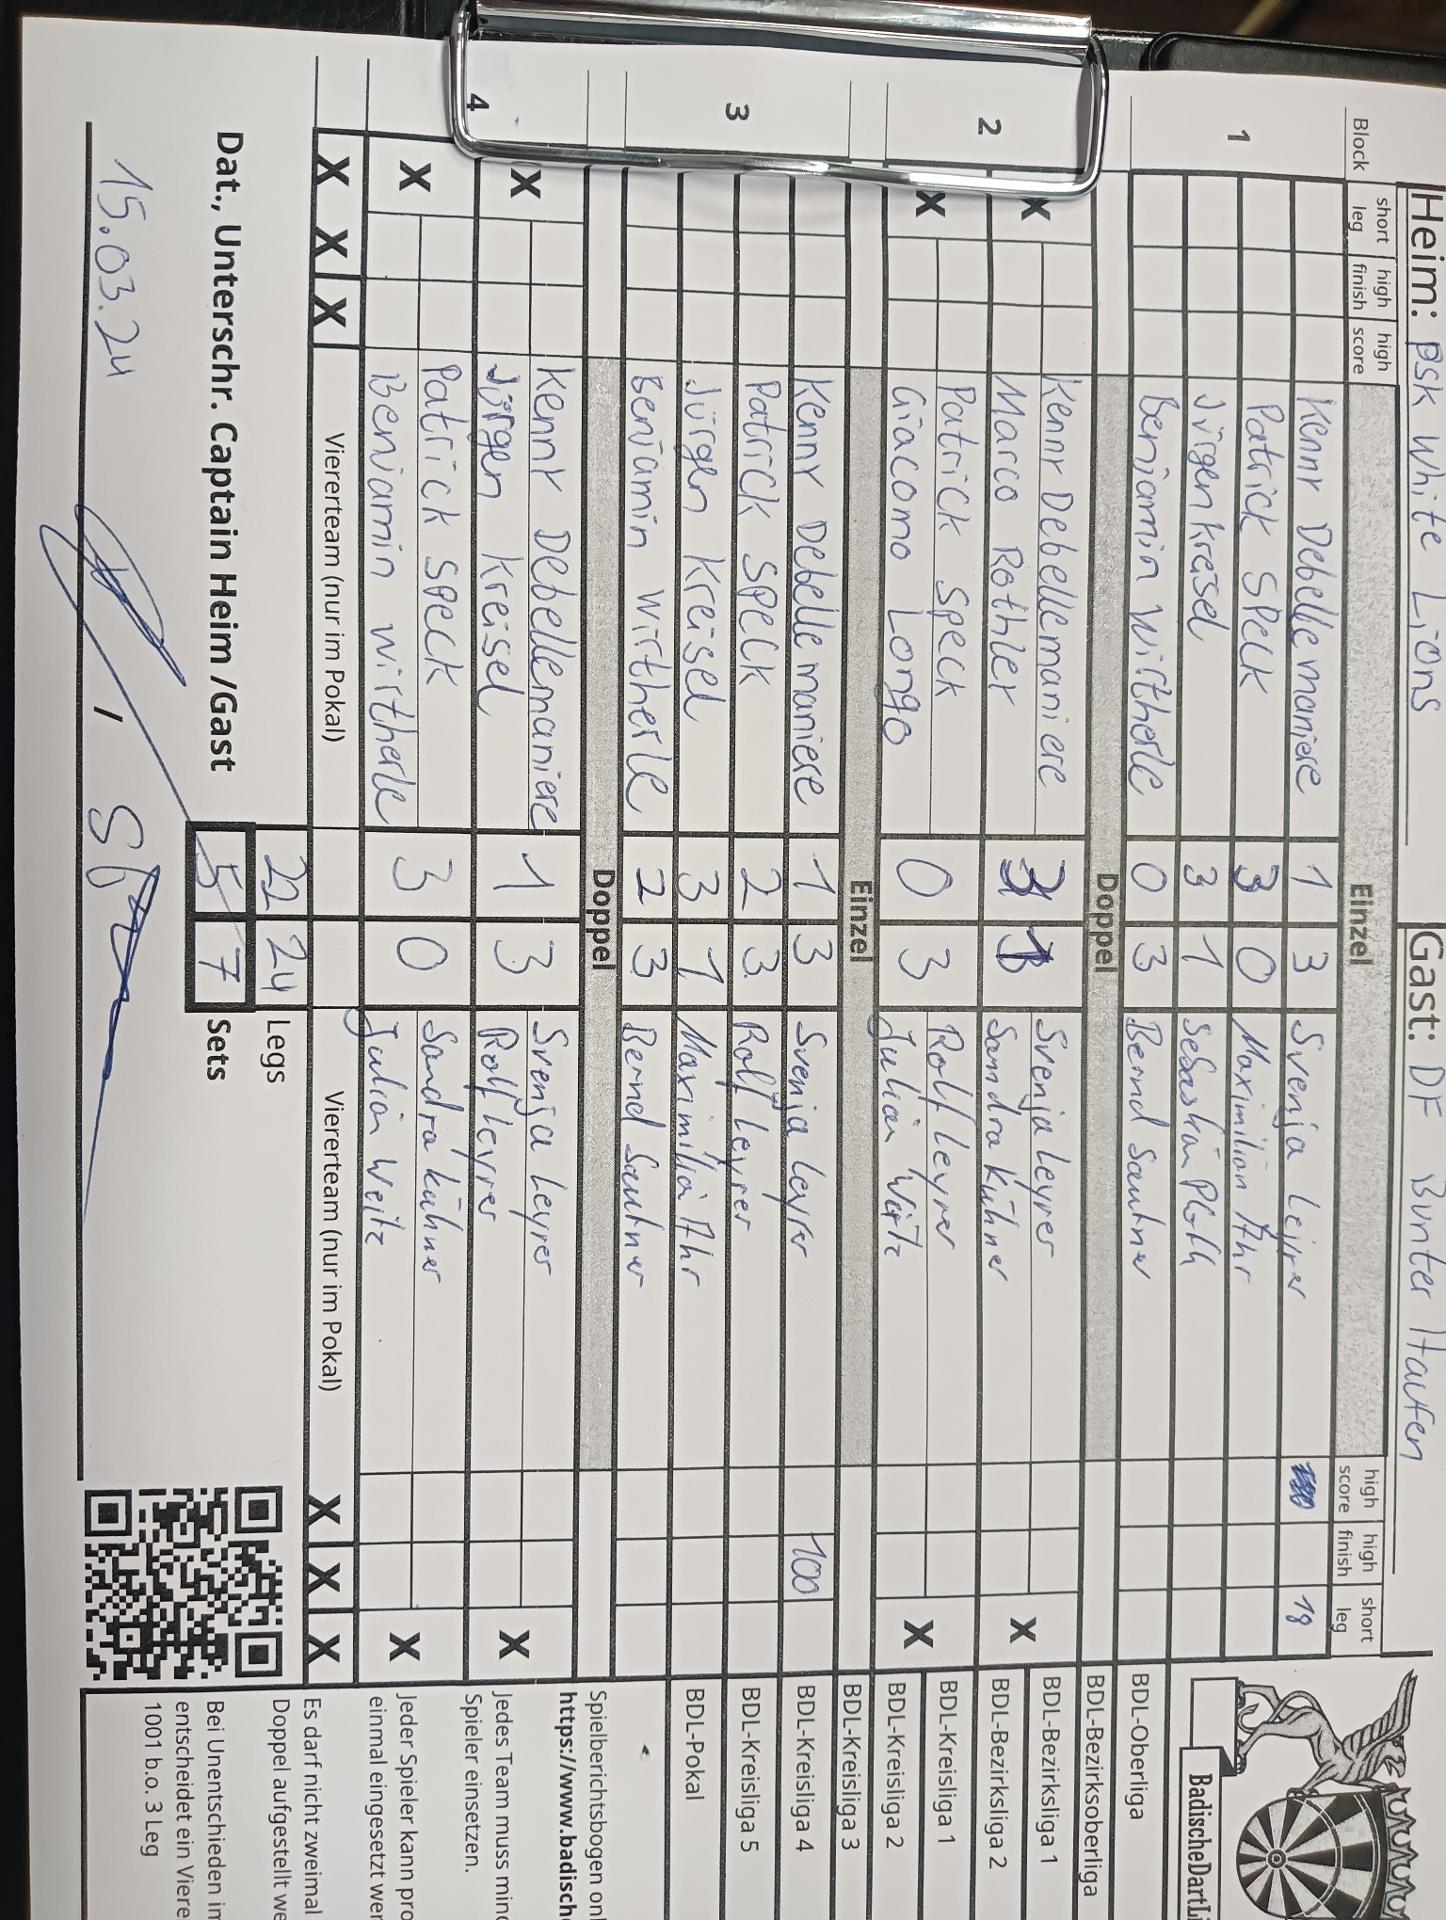 Heim: PSK White Lions Gast: DF Bunter Haufen
Block short leg high finish high score Einzel high score high finish short leg
1
Kenny Debellemaniere 1 3 Svenja Leyrer 18
Patrick Speck 3 0 Maximilian Ahr
Jürgen Kreisel 3 1 Sebastian Ploth
Benjamin Wirtherle 0 3 Bernd Sautner
Doppel
2
X Kenny Debellemaniere 3 1 Svenja Leyrer X
Marco Rothler Sandra Kühner
X Patrick Speck 0 3 Rolf Leyrer X
Giacomo Longo Julian Weitz
Einzel
3
Kenny Debellemaniere 1 3 Svenja Leyrer 100
Patrick Speck 2 3 Rolf Leyrer
Jürgen Kreisel 3 1 Maximilia Ahr
Benjamin Wirtherle 2 3 Bernd Sautner
Doppel
4
X Kenny Debellemaniere 1 3 Svenja Leyrer X
Jürgen Kreisel Rolf Leyrer
X Patrick Speck 3 0 Sandra Kühner X
Benjamin Wirtherle Julian Weitz
X X X Viererteam (nur im Pokal) Viererteam (nur im Pokal) X X X
22 24 Legs
Dat., Unterschr. Captain Heim /Gast 5 7 Sets
15.03.24
BadischeDartLi
BDL-Oberliga
BDL-Bezirksoberliga
BDL-Bezirksliga 1
BDL-Bezirksliga 2
BDL-Kreisliga 1
BDL-Kreisliga 2
BDL-Kreisliga 3
BDL-Kreisliga 4
BDL-Kreisliga 5
BDL-Pokal
Spielberichtsbogen onl
https://www.badisch
Jedes Team muss min
Spieler einsetzen.
Jeder Spieler kann pro
einmal eingesetzt wer
Es darf nicht zweimal
Doppel aufgestellt we
Bei Unentschieden im
entscheidet ein Viere
1001 b.o. 3 Leg